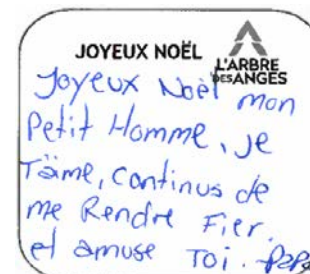 JOYEUX NOËL
L'ARBRE
DES ANGES
Joyeux Noël mon
Petit Homme, je
T'äime, continus de
me Rendre Fier.
et amuse Toi. Papa